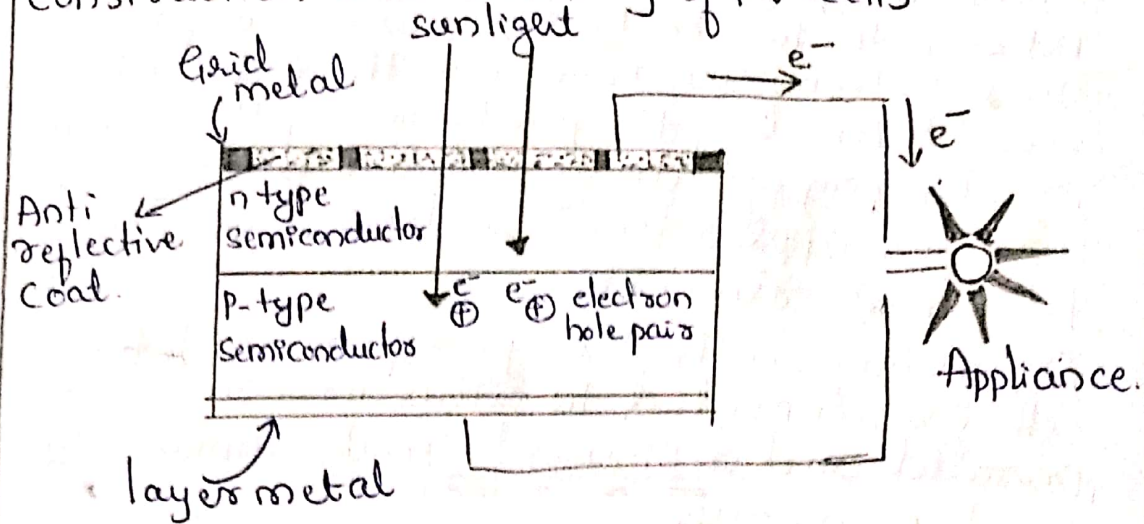 sunligent
Grid
metal
e⁻
e⁻
Anti
reflective
coat.
n type
semiconductor
p-type
semiconductor
e⁻
⊕
e⁻
⊕
electron
hole pair
Appliance.
layer metal